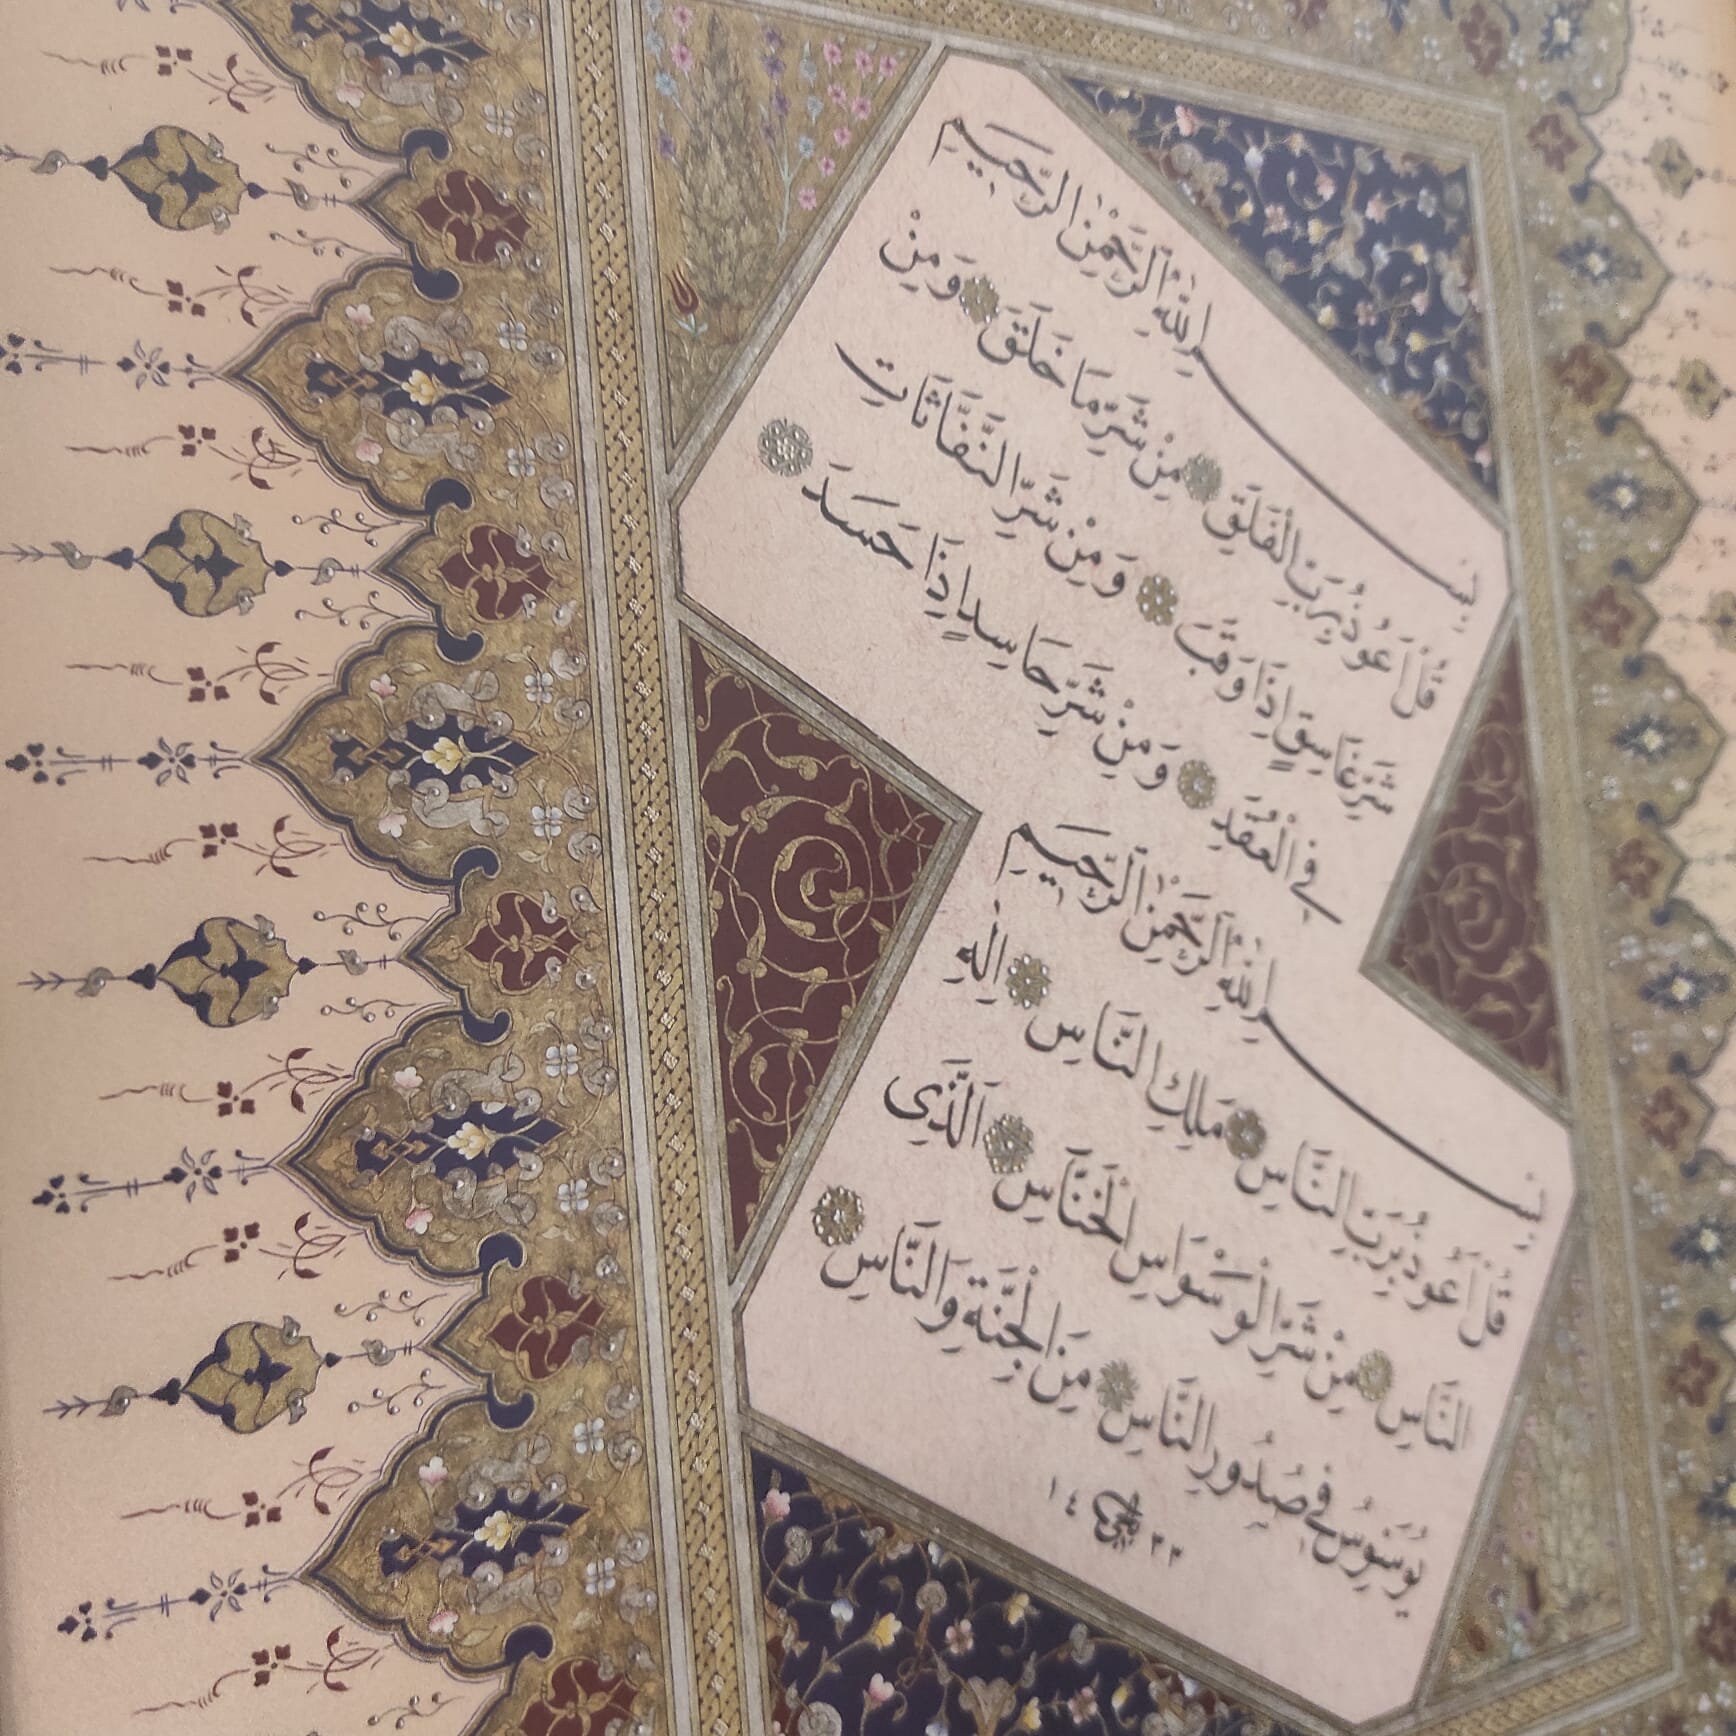 بِسْمِ اللّٰهِ الرَّحْمٰنِ الرَّحِيمِ
قُلْ اَعُوذُ بِرَبِّ الْفَلَقِ مِنْ شَرِّ مَا خَلَقَ وَمِنْ
شَرِّ غَاسِقٍ اِذَا وَقَبَ وَمِنْ شَرِّ النَّفَّاثَاتِ
فِي الْعُقَدِ وَمِنْ شَرِّ حَاسِدٍ اِذَا حَسَدَ
بِسْمِ اللّٰهِ الرَّحْمٰنِ الرَّحِيمِ
قُلْ اَعُوذُ بِرَبِّ النَّاسِ مَلِكِ النَّاسِ اِلٰهِ
النَّاسِ مِنْ شَرِّ الْوَسْوَاسِ الْخَنَّاسِ اَلَّذِى
يُوَسْوِسُ فِي صُدُورِ النَّاسِ مِنَ الْجِنَّةِ وَالنَّاسِ